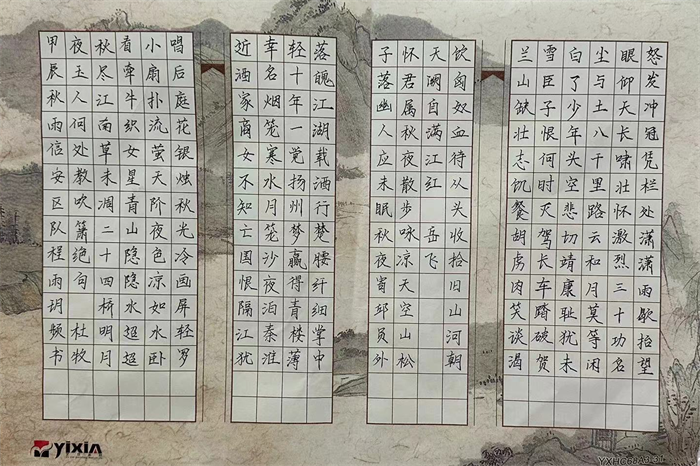 怒发冲冠凭栏处潇潇雨歇抬望
眼仰天长啸壮怀激烈三十功名
尘与土八千里路云和月莫等闲
白了少年头空悲切靖康耻犹未
雪臣子恨何时灭驾长车踏破贺
兰山缺壮志饥餐胡虏肉笑谈渴
饮匈奴血待从头收拾旧山河朝
天阙自满江红 岳飞
怀君属秋夜散步咏凉天空山松
子落幽人应未眠秋夜寄邱员外
落魄江湖载酒行楚腰纤细掌中
轻十年一觉扬州梦赢得青楼薄
幸名烟笼寒水月笼沙夜泊秦淮
近酒家商女不知亡国恨隔江犹
唱后庭花银烛秋光冷画屏轻罗
小扇扑流萤天阶夜色凉如水卧
看牵牛织女星青山隐隐水超超
秋尽江南草未凋二十四桥明月
夜玉人何处教吹箫绝句 杜牧
甲辰秋雨信安区队程雨玥频书
YIXIA